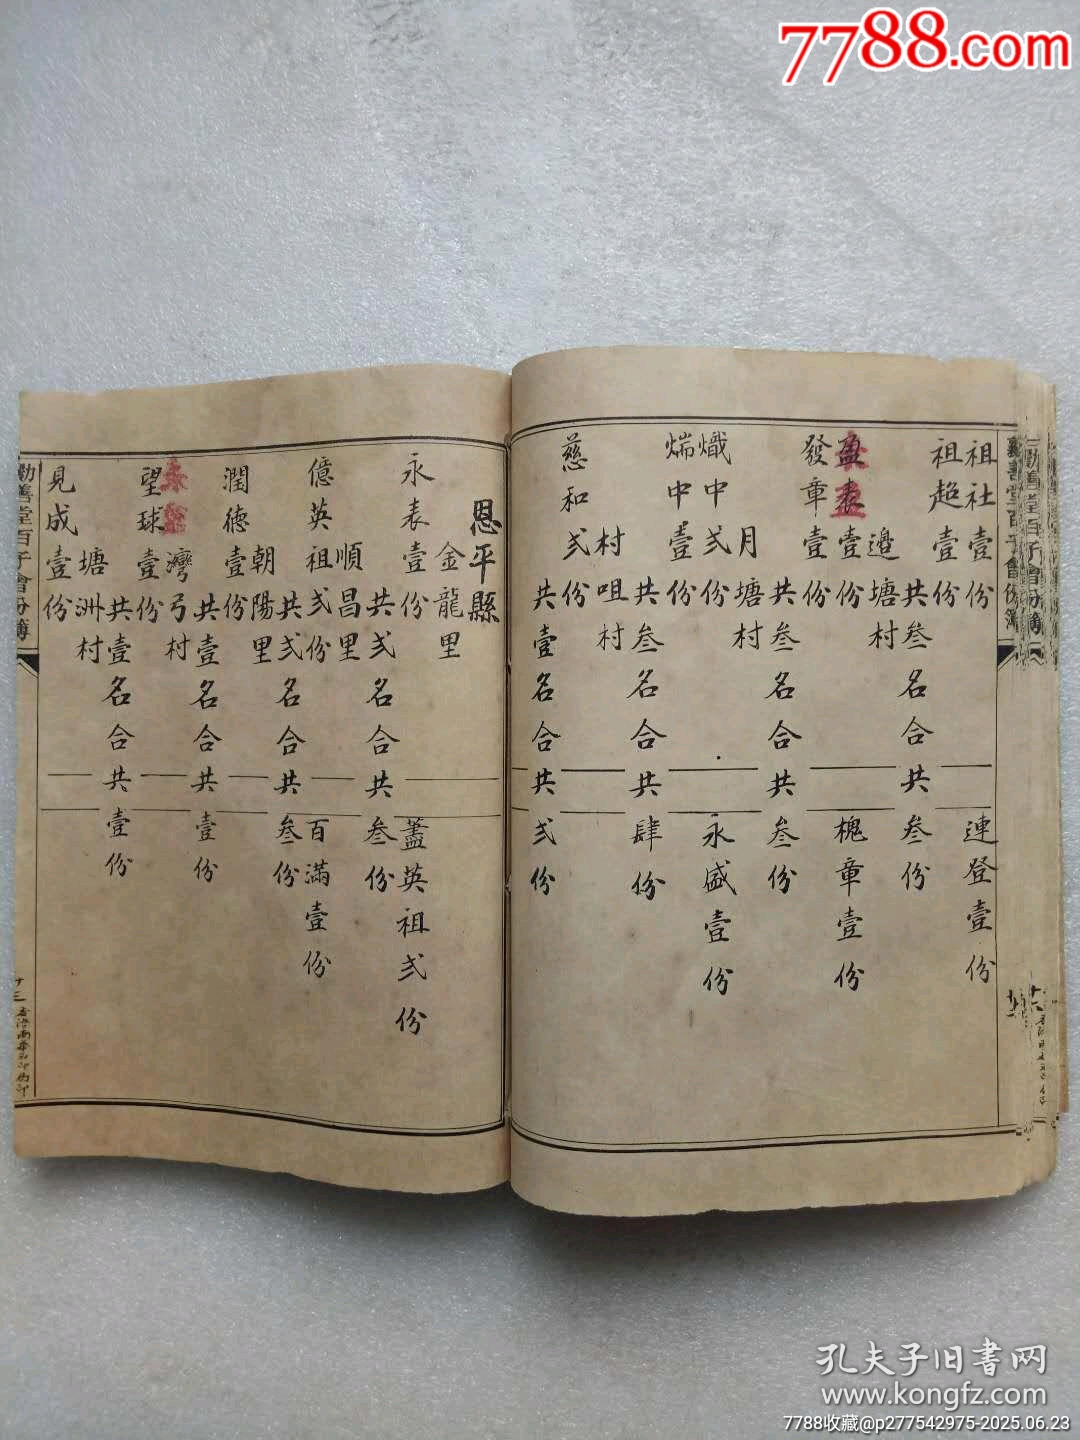 7788.com
祖社壹份
連登壹份
祖超壹份
共叁名合共叁份
邉塘村
盈表壹份
槐章壹份
發章壹份
共叁名合共叁份
月塘村
熾中弍份
永盛壹份
煓中壹份
共叁名合共肆份
村咀村
慈和弍份
共壹名合共弍份
恩平縣
金龍里
永表壹份
藎英祖弍份
共弍名合共叁份
順昌里
億英祖弍份
百滿壹份
共弍名合共叁份
朝陽里
潤德壹份
共壹名合共壹份
灣弓村
望球壹份
共壹名合共壹份
塘洲村
見成壹份
勸善堂百子會份簿
十三
孔夫子旧書网
www.kongfz.com
7788收藏@p277542975-2025.06.23